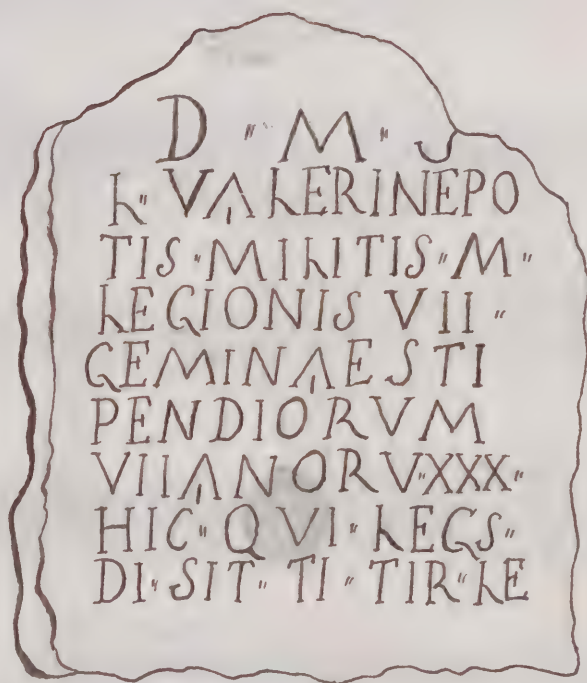 D · M · S
L · VALERI NEPO
TIS · MILITIS · M ·
LEGIONIS VII ·
GEMINAE STI
PENDIORVM
VII ANORV · XXX ·
HIC · QVI · LEGS ·
DI · SIT · TI · TIR · LE